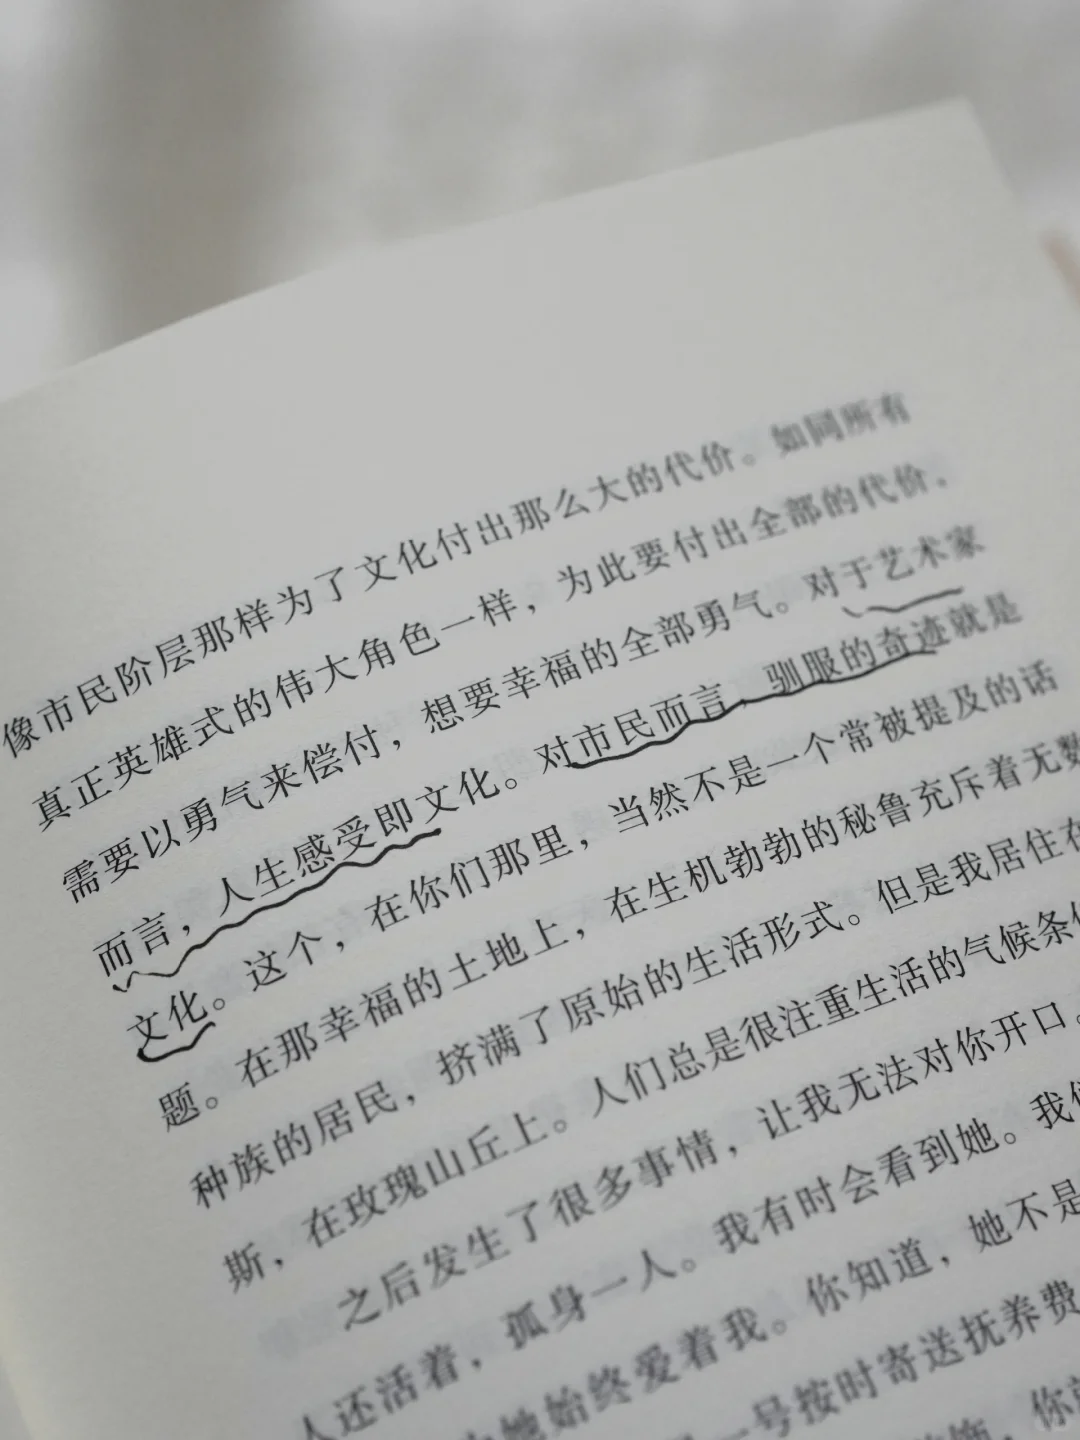 像市民阶层那样为了文化付出那么大的代价。如同所有
真正英雄式的伟大角色一样，为此要付出全部的代价，
需要以勇气来偿付，想要幸福的全部勇气。对于艺术家
而言，人生感受即文化。对市民而言，驯服的奇迹就是
文化。这个，在你们那里，当然不是一个常被提及的话
题。在那幸福的土地上，在生机勃勃的秘鲁充斥着无数
种族的居民，挤满了原始的生活形式。但是我居住在
斯，在玫瑰山丘上。人们总是很注重生活的气候条
之后发生了很多事情，让我无法对你开口。
人还活着，孤身一人。我有时会看到她。我
她始终爱着我。你知道，她不是
一号按时寄送抚养费
，你